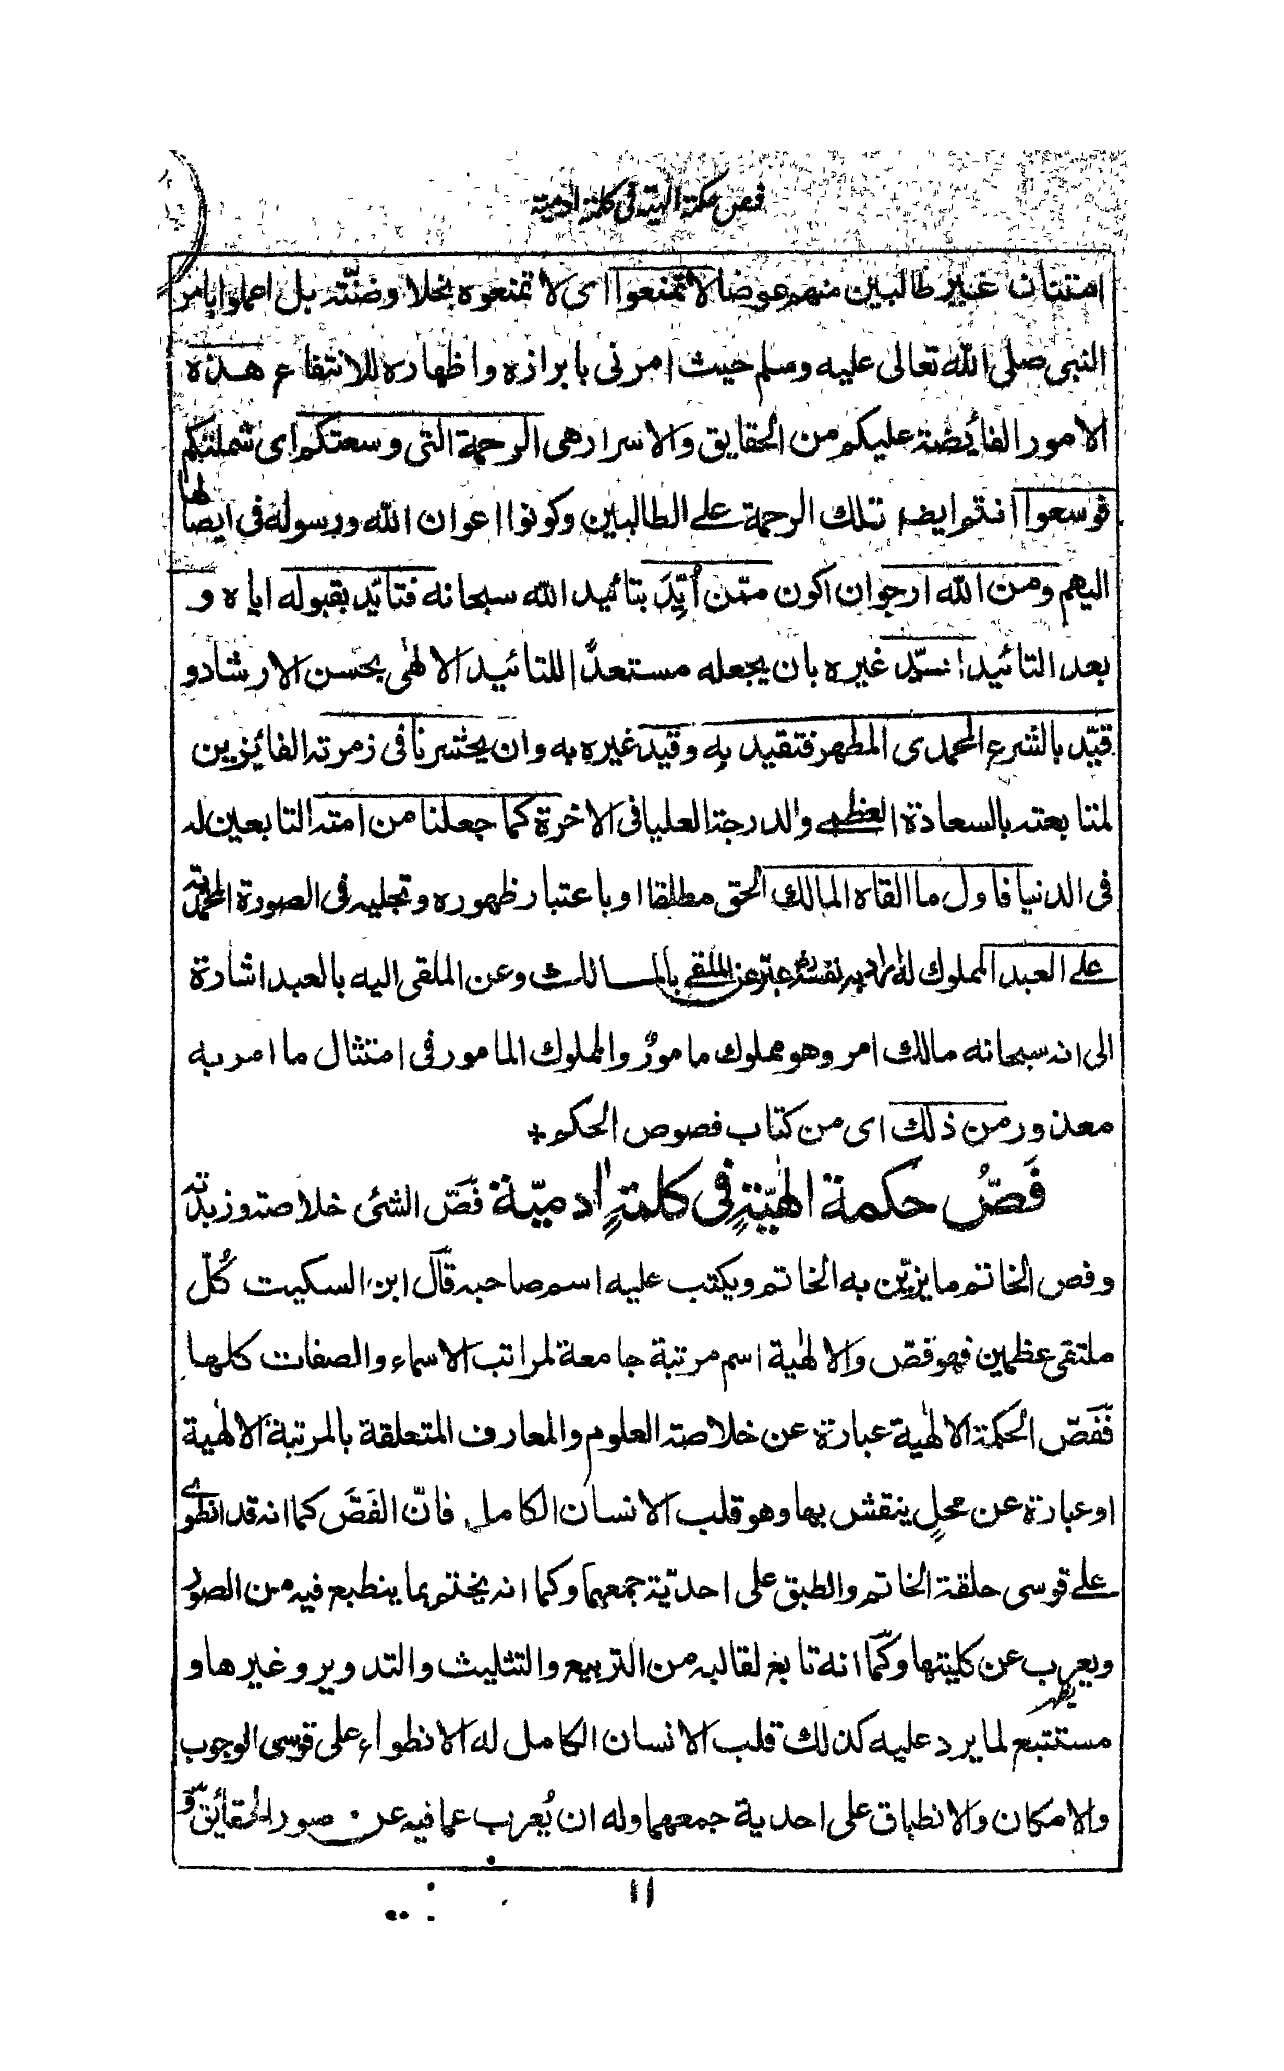 فص حكمة الهية فى كلمة ادمية
امتنان غير طالبين منهم عوضا لا تمنعوا اى لا تمنعوه بخلا وضنّته بل اعملوا بامر
النبى صلى الله تعالى عليه وسلم حيث امرنى بابرازه واظهاره للانتفاع هذه
الامور الفائيضة عليكم من الحقايق والاسرار هى الرحمة التى وسعتكم اى شملتكم
فوسعوا انتم ايضا تلك الرحمة على الطالبين وكونوا اعوان الله ورسوله فى ايصالها
اليهم ومن الله ارجوان اكون ممن اُيِّدَ بتائيد الله سبحانه فتايّد بقبوله اياه و
بعد التائيد ايّد غيره بان يجعله مستعدًّا للتائيد الالهٰى بحسن الارشاد و
قيّد بالشرع المحمدى المطهر فتقيد به وقيد غيره به وان يحشرنا فى زمرته الفائيزين
لمتابعته بالسعادة العظمى والدرجة العليا فى الاخرة كما جعلنا من امته التابعين له
فى الدنيا فاول ما القاه المالك الحق مطلقا او باعتبار ظهوره وتجليه فى الصورة المحمدية
على العبد المملوك له مراد به نفسه عبّر عن الملقى بالمالك وعن الملقى اليه بالعبد اشارة
الى انه سبحانه مالك امر وهو مملوك مامورٌ والمملوك المامور فى امتثال ما امر به
معذور من ذلك اى من كتاب فصوص الحكم +
فَصُّ حكمة الهٰيّةٍ فى كلمةٍ اٰدميّة فَصّ الشئى خلاصته وزبدته
وفص الخاتم ما يزيّن به الخاتم ويكتب عليه اسم صاحبه قال ابن السكيت كُلّ
ملتقى عظمين فهو فصّ والالهٰية اسم مرتبة جامعة لمراتب الاسماء والصفات كلها
فَفَصّ الحكمة الالهٰية عبارة عن خلاصة العلوم والمعارف المتعلقة بالمرتبة الالهٰية
او عبارة عن محلٍ ينقش بها وهو قلب الانسان الكامل فانّ الفَصّ كما انه قد انطوى
على قوسى حلقة الخاتم والطبق على احديّة جمعهما وكما انه يختم بما ينطبع فيه من الصور
ويعرب عن كليتها وكما انه تابع لقالبه من التربيع والتثليث والتدوير وغيرها و
يظهر
مستتبع لما يرد عليه كذلك قلب الانسان الكامل له الانطواء على قوسى الوجوب
والامكان والانطباق على احدية جمعهما وله ان يُعرب عما فيه عن صور الحقائق و
١١